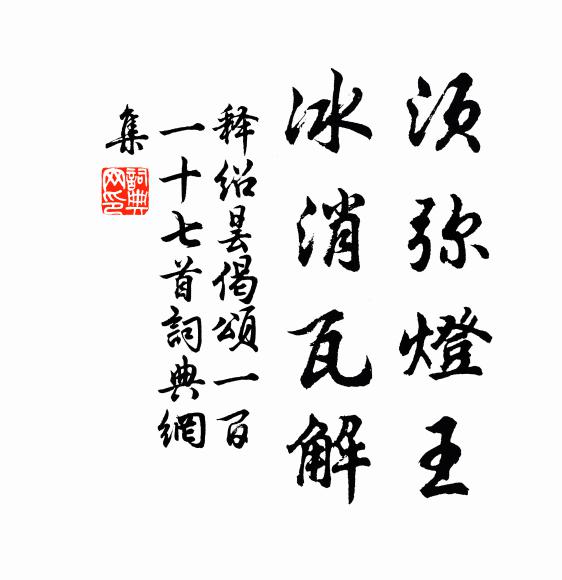 须弥燈王
冰消瓦解
释绍昙偈頌一百
一十七首詞典網
集
詞典
网印